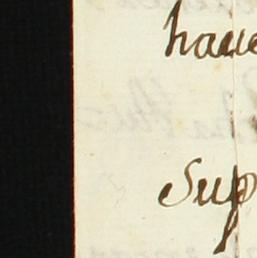 have
Sup